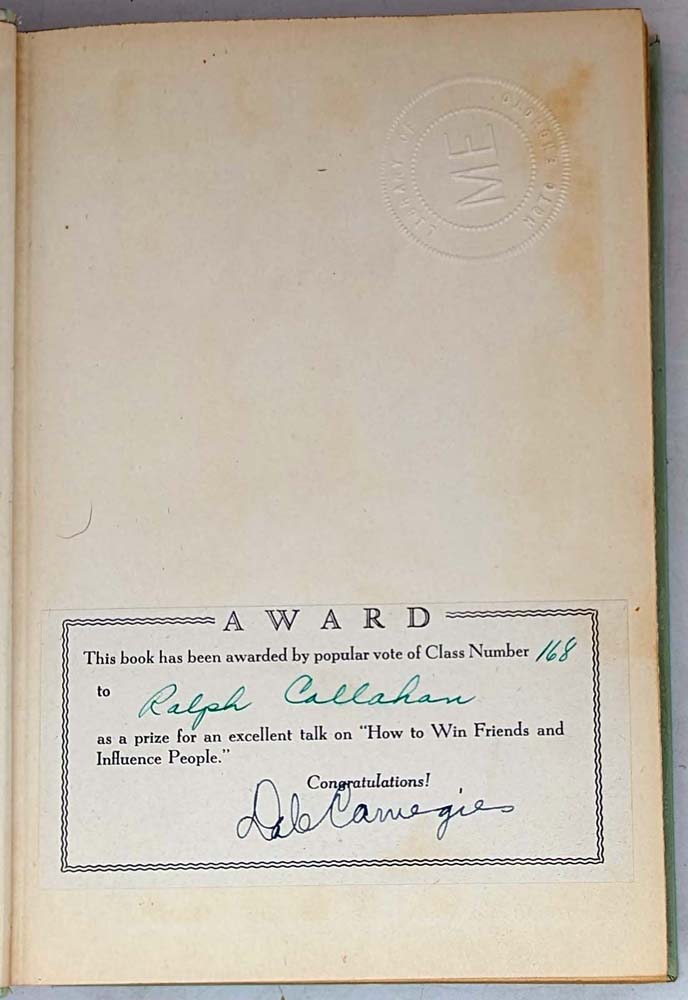 LIBRARY OF
ME
AWARD
This book has been awarded by popular vote of Class Number 168
to Ralph Callahan
as a prize for an excellent talk on "How to Win Friends and
Influence People."
Congratulations!
Dale Carnegie